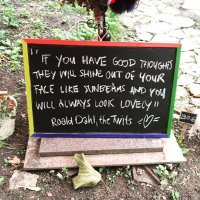 "IF YOU HAVE GOOD THOUGHTS
THEY WILL SHINE OUT OF YOUR
FACE LIKE SUNBEAMS AND YOU
WILL ALWAYS LOOK LOVELY"
Roald Dahl, the Twits